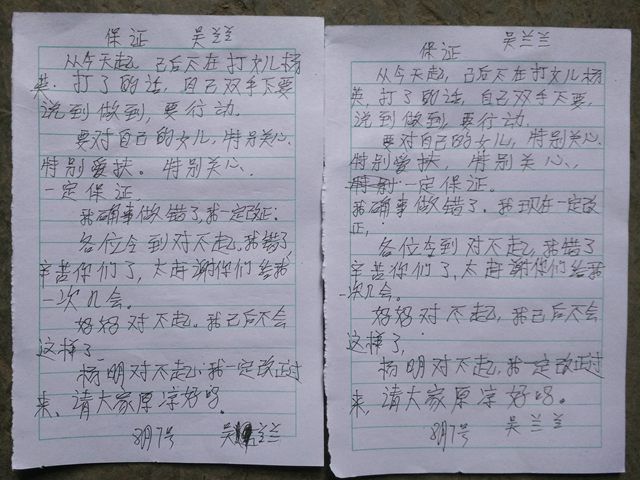 保证 吴兰兰
从今天起，己后不在打女儿杨
英.打了的话，自己双手不要
说到做到，要行动.
要对自己的女儿，特别关心.
特别爱扶.特别关心.
一定保证
我确事做错了，我一定改正.
各位令到对不起，我错了
辛苦你们了，太谢你们给我
一次几会。
好好对不起.我己后不会
这样了
杨明对不起.我一定改正过
来、请大家原凉好吗.
8月7号 吴兰兰
保证 吴兰兰
从今天起，己后不在打女儿杨
英，打了的话，自己双手不要，
说到做到，要行动.
要对自己的女儿，特别关心.
特别爱扶，特别关心、，
一定保证。
我确事做错了.我现在一定改
正，
各位令到对不起，我错了
辛苦你们了，太谢你们给我
一次几会。
好好对不起，我己后不会
这样了，
杨明对不起.我一定改正过
来，请大家原凉好吗。
8月7号 吴兰兰